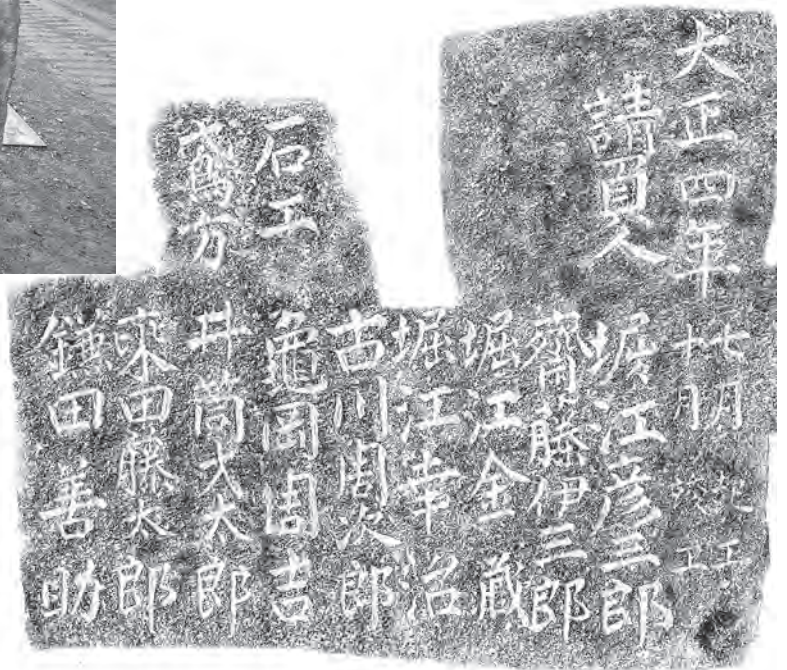 大正四年
七月起工
十月竣工
請負人 堀江彦三郎
齋藤伊三郎
堀江金蔵
堀江幸治
古川周次郎
石工 龜岡周吉
鳶方 井筒太郎
來田藤太郎
鎌田善助